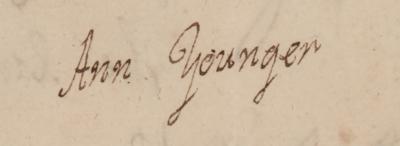 Ann Younger